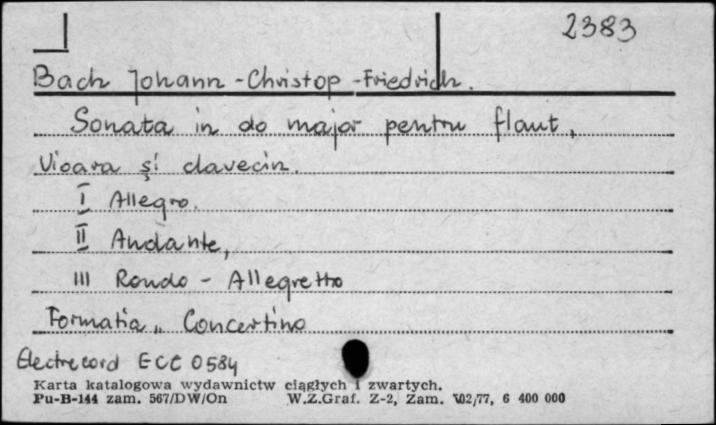 2383
Bach Johann - Christop - Friedrich.
Sonata in do major pentru flaut,
Vioara și clavecin.
I Allegro.
II Andante,
III Rondo - Allegretto
Formatia „ Concertino
Electrecord ECE 0584
Karta katalogowa wydawnictw ciągłych i zwartych.
Pu-B-144 zam. 567/DW/On W.Z.Graf. Z-2, Zam. 702/77, 6 400 000